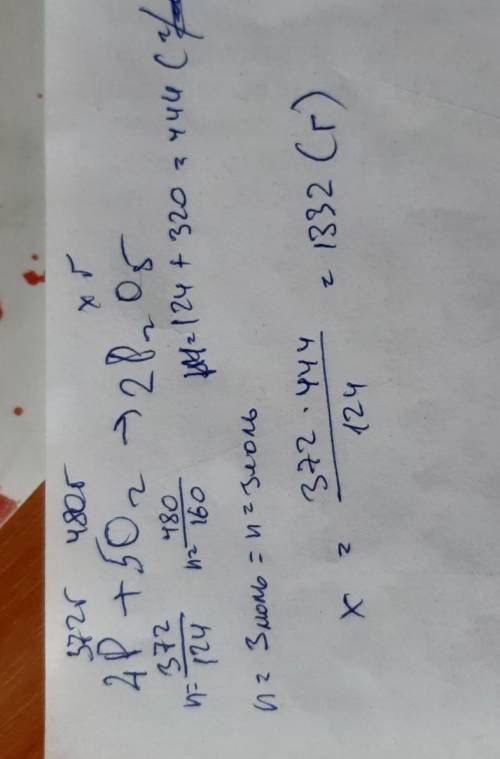 372г 480г x г
4P + 5O₂ → 2P₂O₅
n = 372/124 n = 480/160 M = 124 + 320 = 444 (г/
n = 3 моль = n = 3 моль
x = 372 · 444 / 124 = 1332 (г)